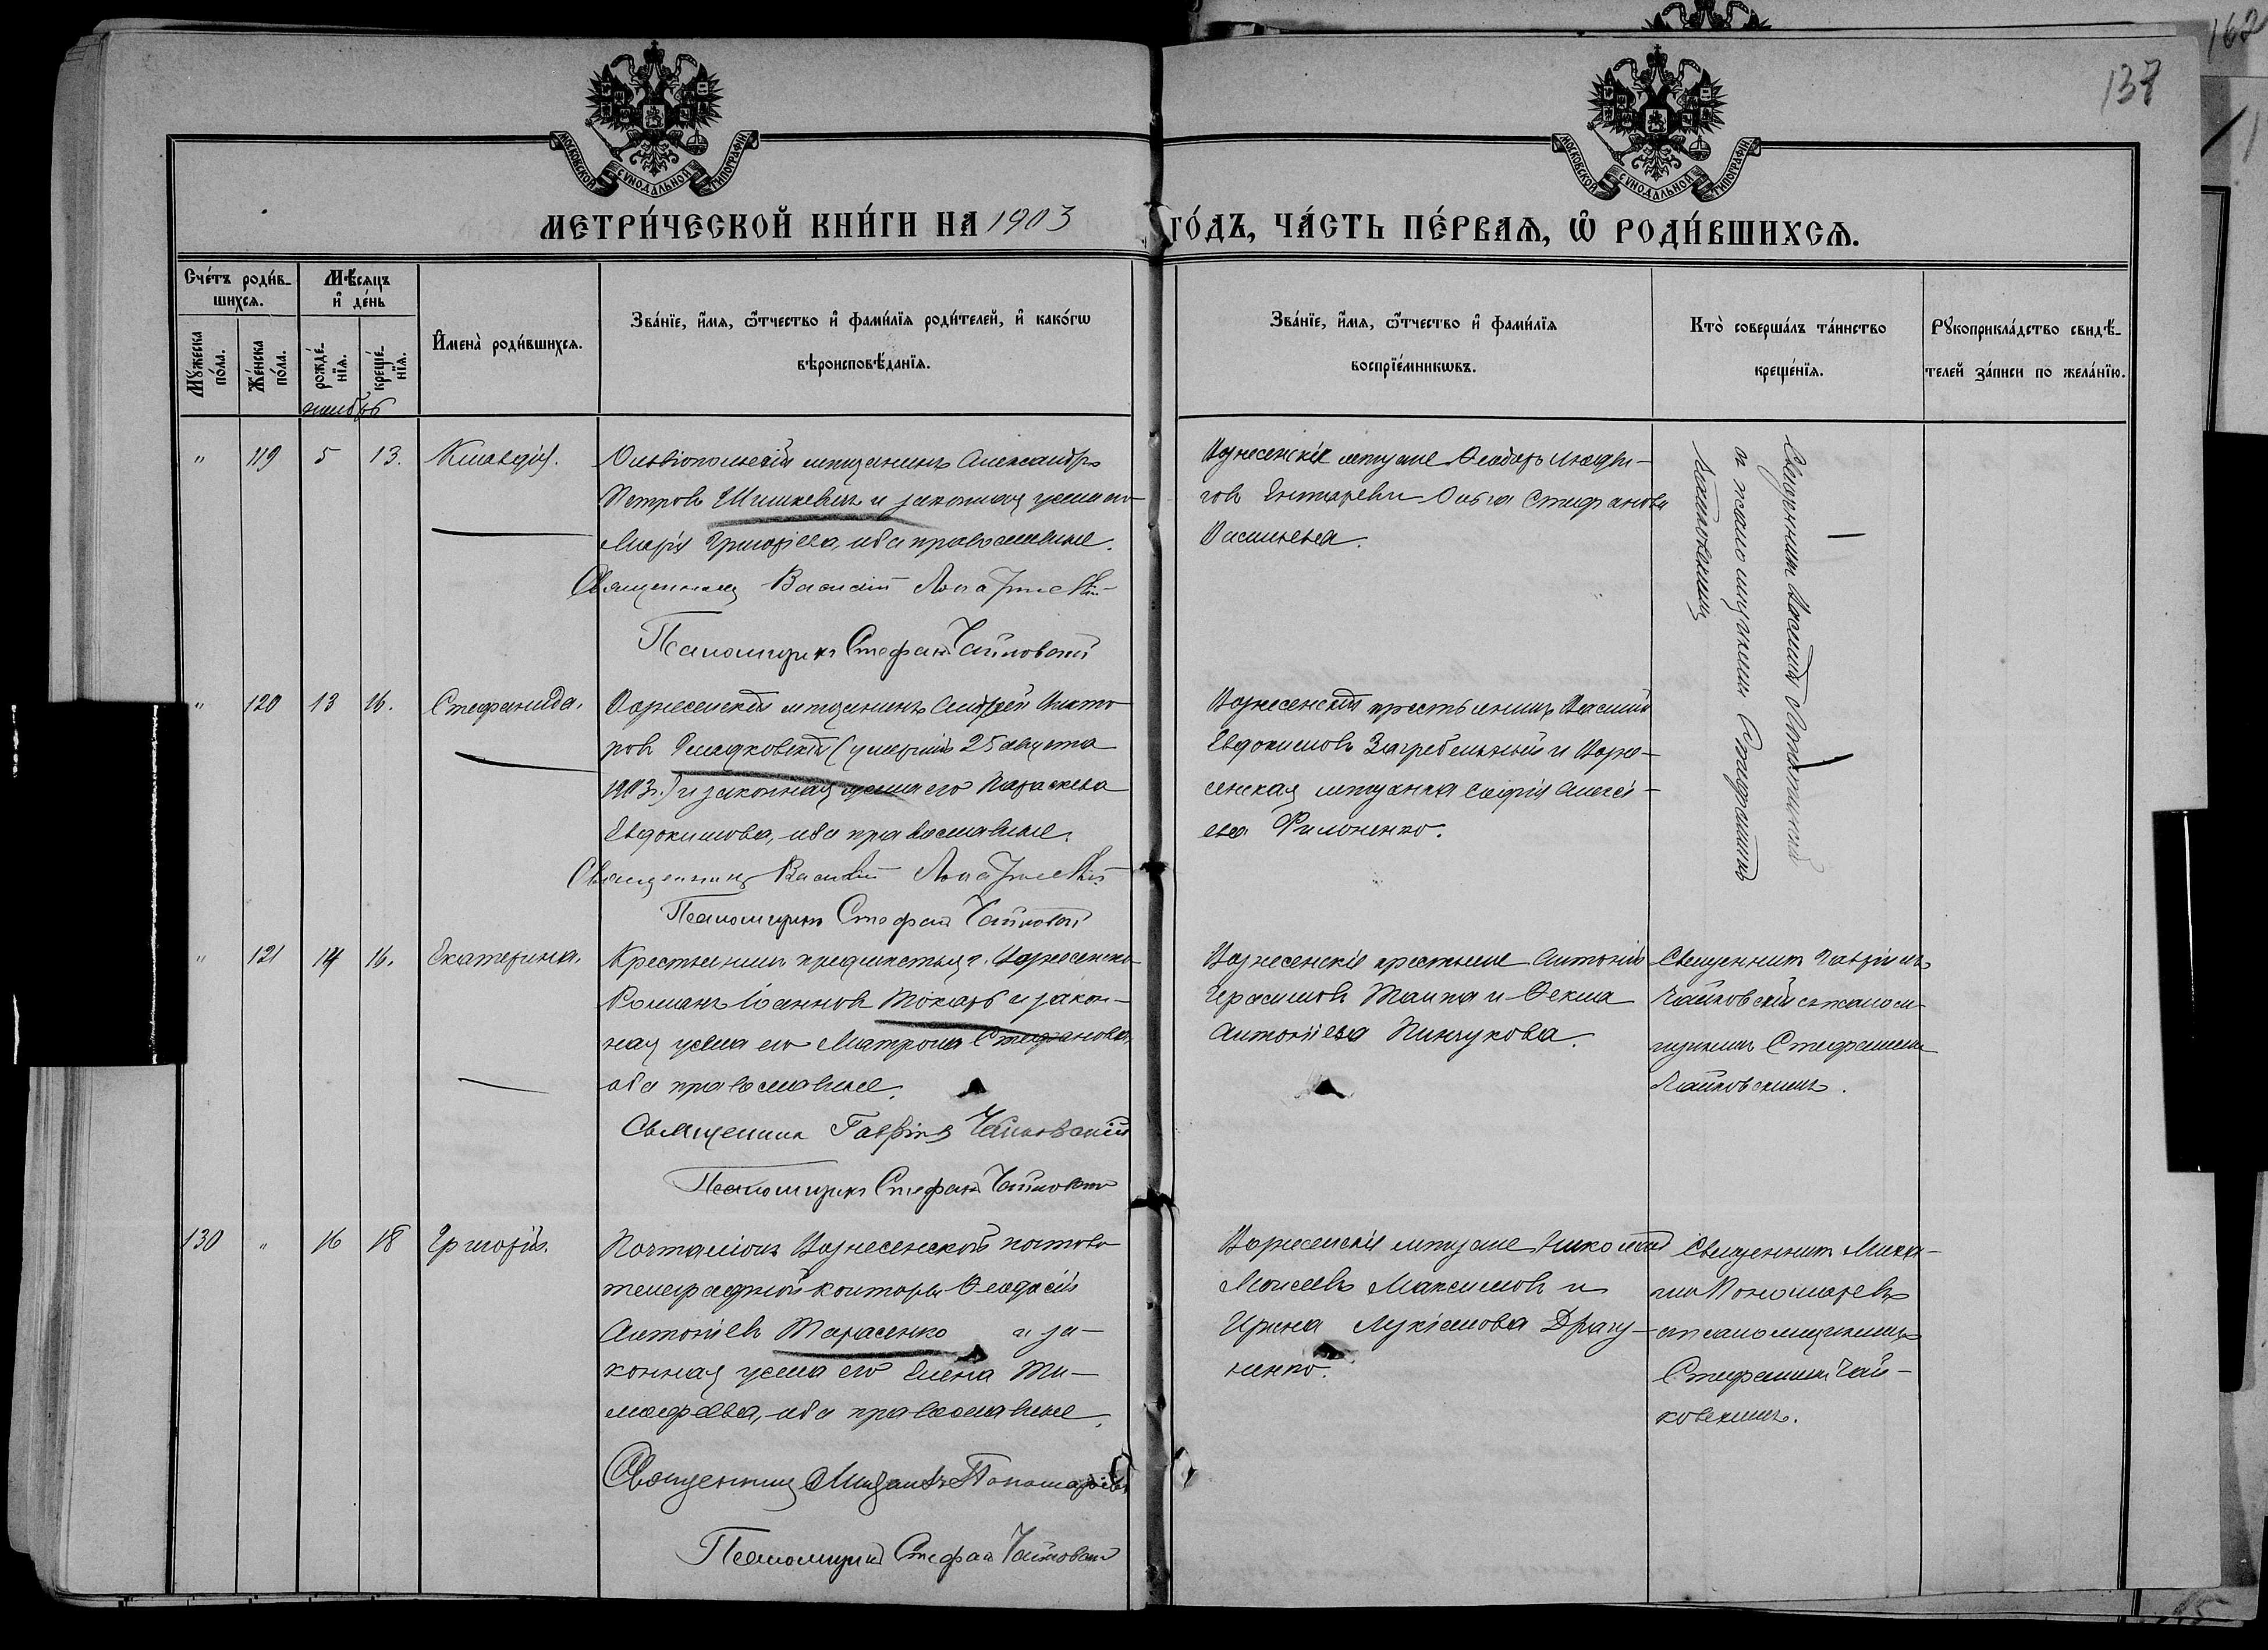 162
137
МОСКОВСКОЙ СѴНОДАЛЬНОЙ ТИПОГРАФІИ
МОСКОВСКОЙ СѴНОДАЛЬНОЙ ТИПОГРАФІИ
МЕТРИ́ЧЕСКОЙ КНИ́ГИ НА 1903 ГО́ДЪ, ЧА́СТЬ ПЕ́РВАѦ, Ѡ РОДИ́ВШИХСѦ.
Сче́тъ роди́в-
шихсѧ.
Мѣ́сѧцъ
и҆ де́нь
Мꙋ́жеска
по́ла.
Же́нска
по́ла.
рожде́-
нїѧ.
креще́-
нїѧ.
И҆мена̀ роди́вшихсѧ.
Зва́нїе, и҆́мѧ, ѻ҆́тчество и҆ фами́лїѧ роди́телей, и҆ како́гѡ
вѣроисповѣ́данїѧ.
Зва́нїе, и҆́мѧ, ѻ҆́тчество и҆ фами́лїѧ
воспрїе́мникѡвъ.
Кто̀ соверша́лъ та́инство
креще́нїѧ.
Рꙋкоприкла́дство свидѣ́-
телей за́писи по жела́нїю.
ноябрь
" 119 5 13. Клавдія.
Ольвіопольскій мѣщанинъ Александръ
Петровъ Шишкевичъ и законная жена его
Марія Григоріева, оба православные.
Священникъ Василій
Псаломщикъ Стефанъ Чайковскій
Вознесенскіе мѣщане Ѳеодоръ
Ольга Стефанова
Васильева.
Священникъ Василій
съ псаломщикомъ Стефаномъ
Чайковскимъ
" 120 13 16. Стефанида.
Вознесенскій мѣщанинъ Андрей Викто
ровъ (умершій 25 августа
1903 г.) и законная жена его Параскева
Евдокимова, оба православные.
Священникъ Василій
Псаломщикъ Стефанъ Чайковскій
Вознесенскій крестьянинъ Василій
Евдокимовъ Загребельный и Возне-
сенская мѣщанка Софія Алексѣ-
ева Филоненко.
" 121 14 16. Екатерина.
Крестьянинъ предмѣстья г. Вознесенска
Романъ Іоанновъ Токарь и закон-
ная жена его Матрона Стефанова,
оба православные.
Священникъ Гавріилъ Чайковскій
Псаломщикъ Стефанъ Чайковскій
Вознесенскіе крестьяне Антоній
Герасимовъ и Ѳекла
Антоніева Пинчукова.
Священникъ Гавріилъ
Чайковскій съ псалом-
щикомъ Стефаномъ
Чайковскимъ.
130 " 16 18 Григорій.
Почталіонъ Вознесенской почтово
телеграфной конторы Ѳеодосій
Антоніевъ Тарасенко и за-
конная жена его Елена Ти-
моѳеева, оба православные.
Священникъ Михаилъ Пономаревъ
Псаломщикъ Стефанъ Чайковскій
Вознесенскіе мѣщане Николай
Моисеевъ Максимовъ и
Ирина Лукіанова Драгу-
ненко.
Священникъ Миха-
илъ Пономаревъ
съ псаломщикомъ
Стефаномъ Чай-
ковскимъ.